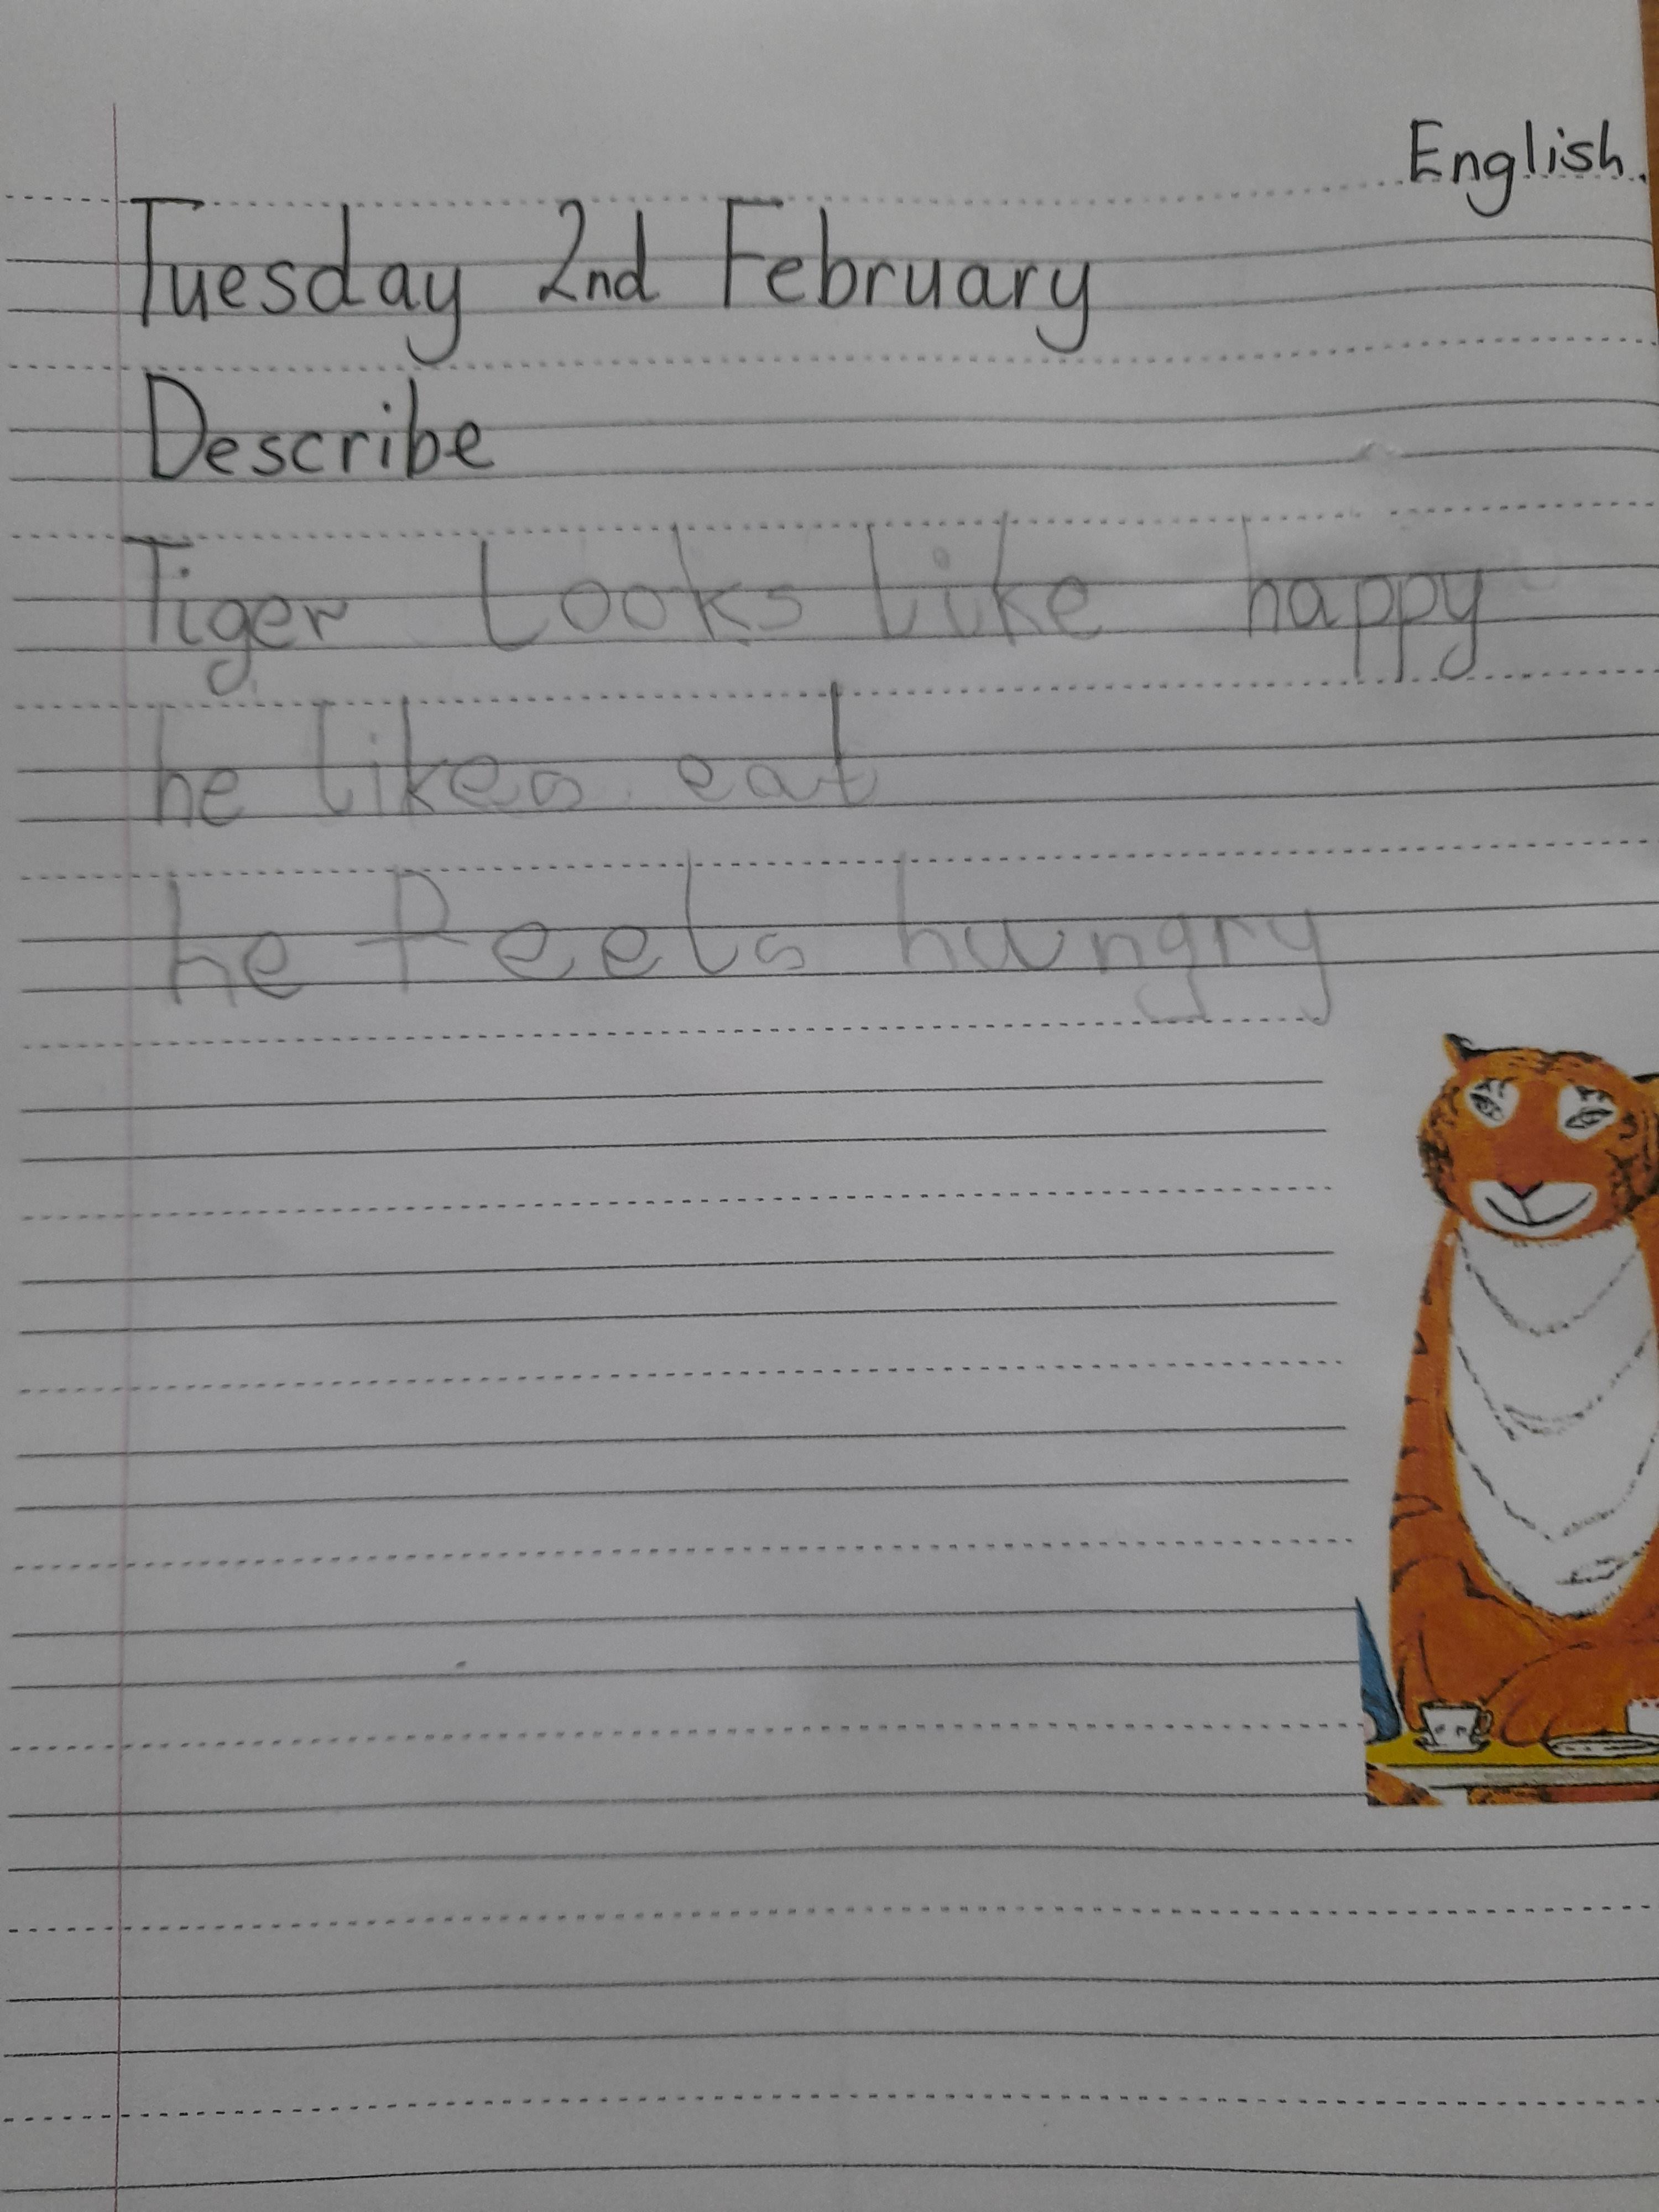 English.
Tuesday 2nd February
Describe
Tiger Looks like happy
he likes eat
he feels hungry